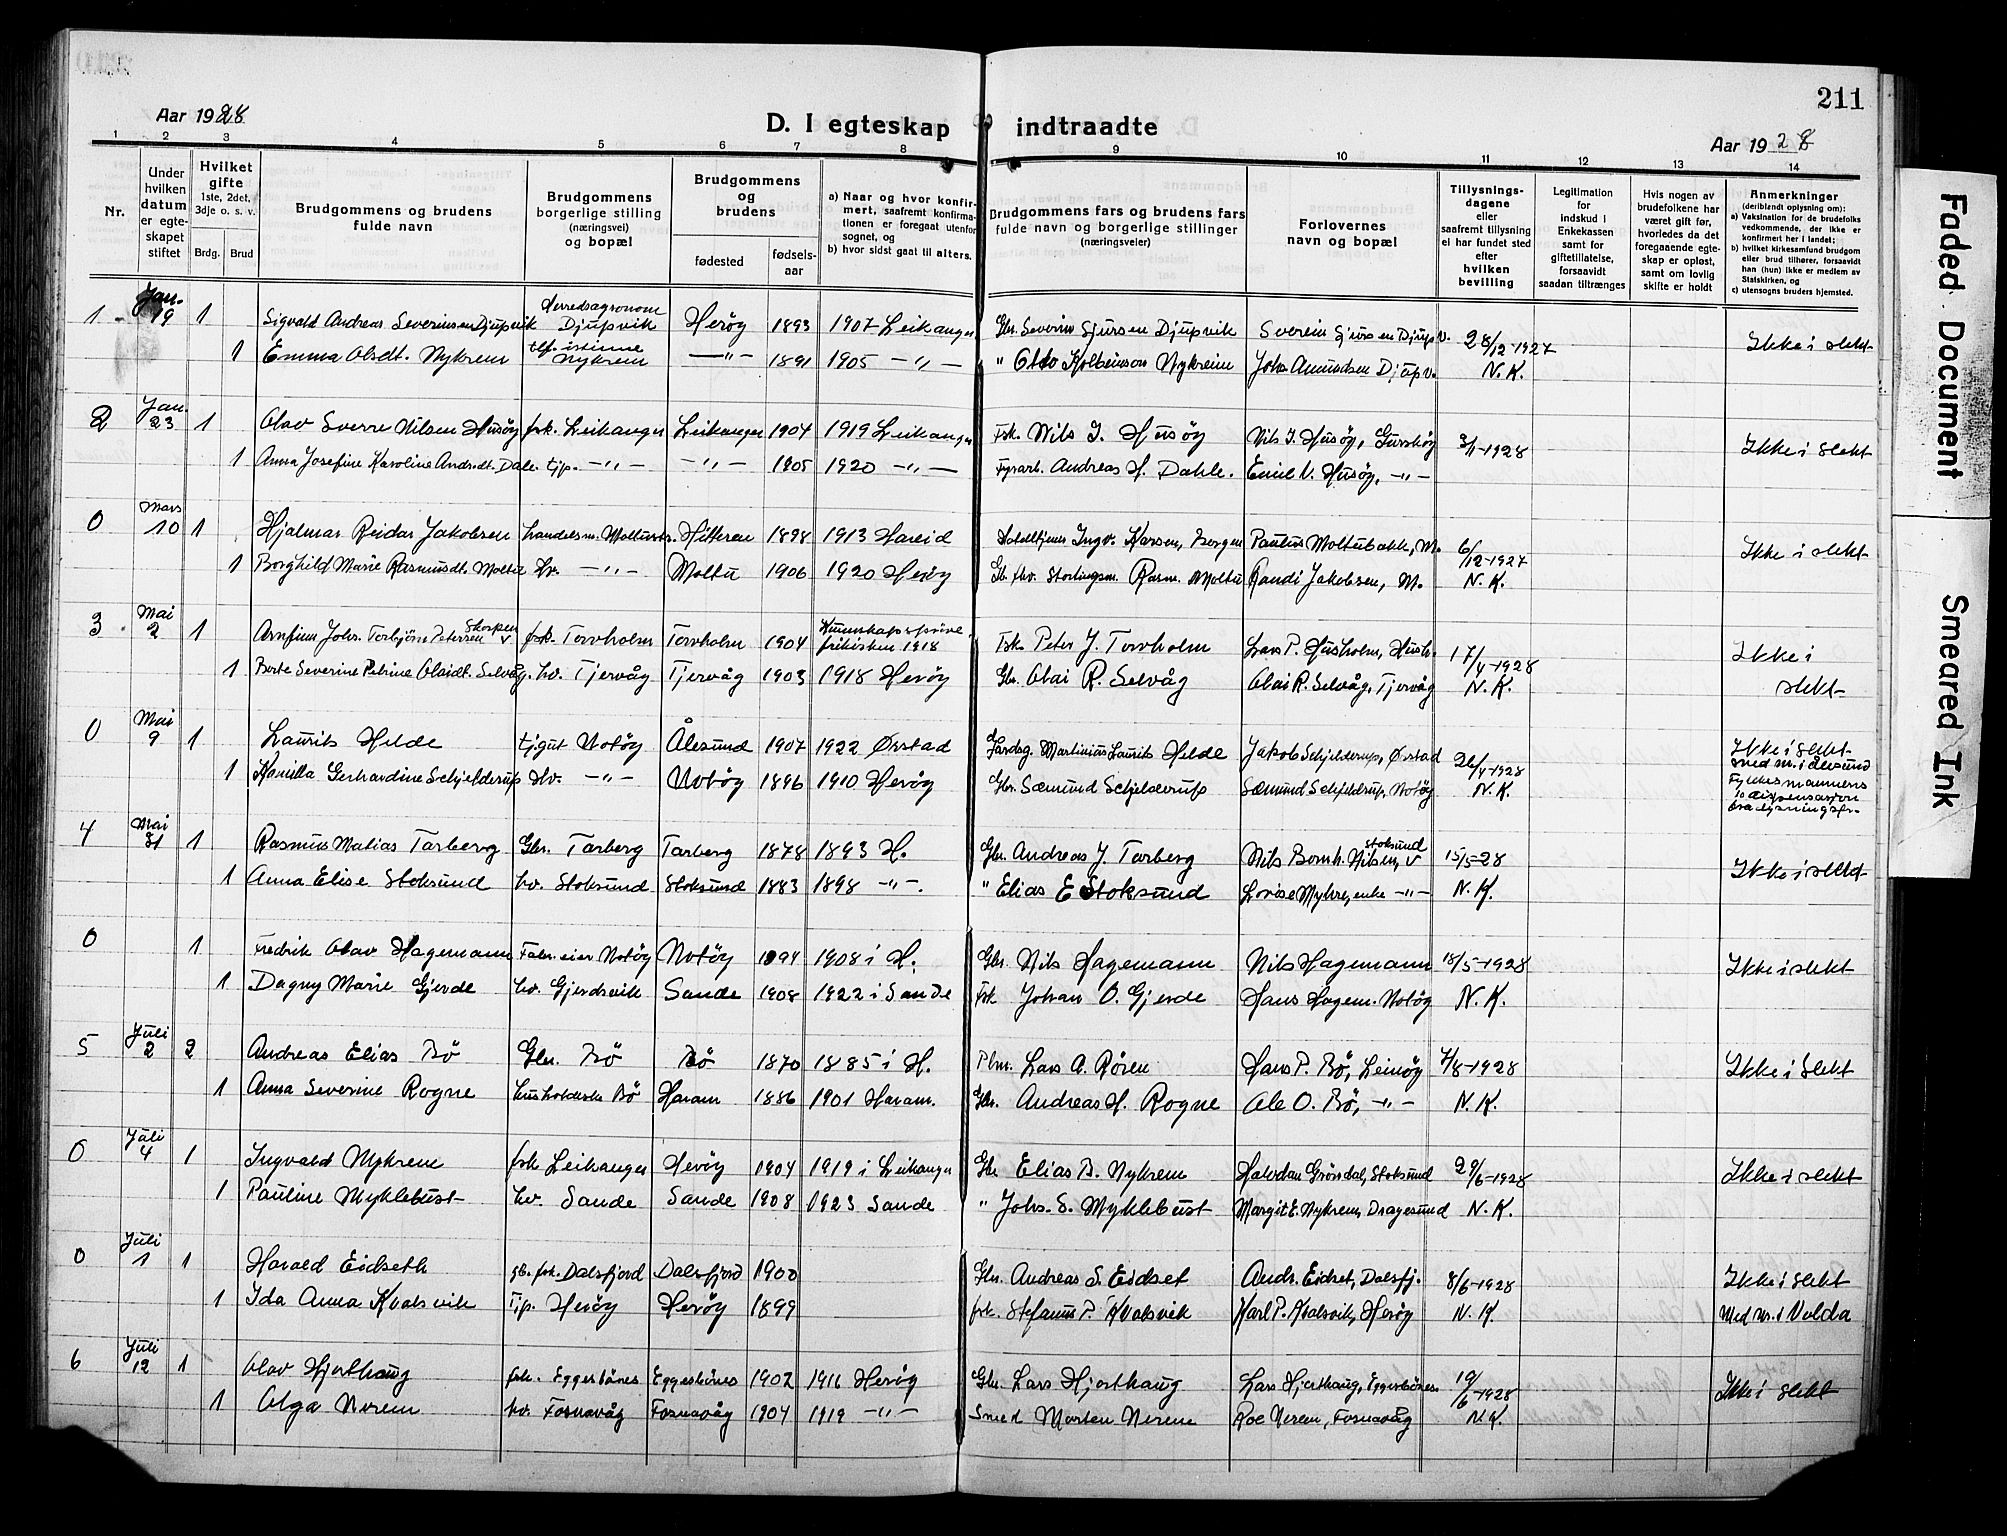 211
Aar 1928
D. Iegteskap indtraadte
Aar 1928
1 2 3 4 5 6 7 8 9 10 11 12 13 14
Nr.
Under hvilken datum er egteskapet stiftet
Hvilket gifte 1ste, 2det, 3dje o. s. v.
Brdg. Brud
Brudgommens og brudens fulde navn
Brudgommens borgerlige stilling (næringsvei) og bopæl
Brudgommens og brudens
fødested fødselsaar
a) Naar og hvor konfirmert, saafremt konfirmationen er foregaat utenfor sognet, og
b) hvor sidst gaat til alters.
Brudgommens fars og brudens fars fulde navn og borgerlige stillinger (næringsveier)
Forlovernes navn og bopæl
Tillysningsdagene eller saafremt tillysning ei har fundet sted efter hvilken bevilling
Legitimation for indskud i Enkekassen samt for giftetillatelse, forsaavidt saadan tiltrænges
Hvis nogen av brudefolkene har været gift før, hvorledes da det foregaaende egteskap er opløst, samt om lovlig skifte er holdt
Anmerkninger (deriblandt oplysning om):
a) Vaksination for de brudefolks vedkommende, der ikke er konfirmert her i landet;
b) hvilket kirkesamfund brudgom eller brud tilhører, forsaavidt han (hun) ikke er medlem av Statskirken, og
c) utensogns bruders hjemsted.
1 Jan. 19 1 Sigvald Andreas Severinsen Djupvik Herredsagronom Djupvik Herøy 1893 1907 Leikanger Gbr. Severin Sjursen Djupvik Severin Sjursen Djupv. 28/12-1927 Ikke i slekt
1 Emma Olsdt. Nykrem tlf. istinne Nykrem -"- 1891 1905 -"- " Otto Kolbeinson Nykreim Johs Amundsen Djupv. N.K.
2 Jan. 23 1 Olav Sverre Nilsen Husøy fsk. Leikanger Leikanger 1904 1919 Leikanger Fsk. Nils J. Husøy Nils J. Husøy, Gurskøy 3/1-1928 Ikke i slekt
1 Anna Josefine Karoline Andr.dt. Dale tjp. -"- -"- 1905 1920 -"- Fyrarb. Andreas H. Dahle. Emil N. Husøy, -"-
0 Mars 10 1 Hjalmar Reidar Jakobsen handelsm. Moltustr. Hitteren 1898 1913 Hareid Hotelltjener Ingv. Karsen, Bergen Paulus Moltubakke, M. 6/12-1927 Ikke i slekt
1 Borghild Marie Rasmusdt. Moltu Hv. -"- Moltu 1906 1920 Herøy Gb. fhv. Stortingsm. Rasm. Moltu Randi Jakobsen, M. N.K.
3 Mai 2 1 Arnfinn Johs. Torbjørn Petersen Skorpen fsk. Torvholm Torvholm 1904 Kunnskapsprøve frikirken 1918 Fsk. Peter J. Torvholm Lars P. Husholm, Hush. 17/4-1928 Ikke i
1 Berte Severine Petrine Olaidt. Selvåg hv. Tjervåg Tjervåg 1903 1918 Herøy Gbr. Olai R. Selvåg Olai R. Selvåg, Tjervåg N.K. slekt
0 Mai 9 1 Laurits Helde tj.gut Notøy Ålesund 1907 1922 Ørstad Gardsg. Martinius Laurits Helde Jakob Schjelderup, Ørstad 26/4-1928 Ikke i slekt
1 Kamilla Gerhardine Schjelderup Hv. -"- Notøy 1896 1910 Herøy Gbr. Sæmund Schjelderup Sæmund Schjelderup, Notøy N.K. Smed nr. i Ålesund Fylkesmannens dispensasjon
4 Mai 31 1 Rasmus Matias Tarberg Gbr. Tarberg Tarberg 1878 1893 H. Gbr. Andreas J. Tarberg Nils Bernh. Nilsen, Stoksund 15/5-28 Ikke i slekt
1 Anna Elise Stoksund hv. Stoksund Stoksund 1883 1898 -"-. " Elias E Stoksund Lovise Myhre, enke -"- N.K.
0 1 Fredrik Olav Hagemann Fabr.eier Notøy Notøy 1894 1908 i H. Gbr. Nils Hagemann Nils Hagemann 18/5-1928 Ikke i slekt
1 Dagny Marie Gjerde hv. Gjerdsvik Sande 1908 1922 i Sande Fsk Johan O. Gjerde Hans Hagem. Notøy N.K.
5 Juli 2 2 Andreas Elias Bø Gbr. Bø Bø 1870 1885 i H. Plm. Lars A. Røren Hans P. Bø, Leinøy 7/8-1928 Ikke i slekt
1 Anna Severine Rogne husholderske Bø Haram 1886 1901 Haram. Gbr. Andreas H. Rogne Ole O. Bø, -"- N.K.
0 Juli 4 1 Ingvald Nykrem fsk Leikanger Herøy 1904 1919 i Leikanger Gbr Elias B. Nykrem Halvdan Grönsdal, Stoksund 29/6-1928 Ikke i slekt
1 Pauline Myklebust hv. Sande Sande 1908 1923 Sande " Johs. S. Myklebust Margit E. Nykrem, Dragesund N.K.
0 Juli 1 1 Harald Eidseth gb. fsk. Dalsfjord Dalsfjord 1900 Gbr. Andreas S. Eidset Andr. Eidset, Dalsfj. 8/6-1928 Ikke i slekt
1 Ida Anna Kvalsvik Tjp. Herøy Herøy 1899 fsk. Stefanus P. Kvalsvik Karl P. Kvalsvik, Herøy N.K. Med nr. i Volda
6 Juli 12 1 Olav Hjorthaug fsk. Eggesbönes Eggesbönes 1902 1916 Herøy Gbr. Lars Hjorthaug Lars Hjorthaug, Eggesbönes. 19/6-1928 Ikke i slekt
1 Olga Nerem hv. Fosnavåg Fosnavåg 1904 1919 -"- Smed Morten Nerem Roe Nerem, Fosnavåg N.K.
Faded Document
Smeared Ink